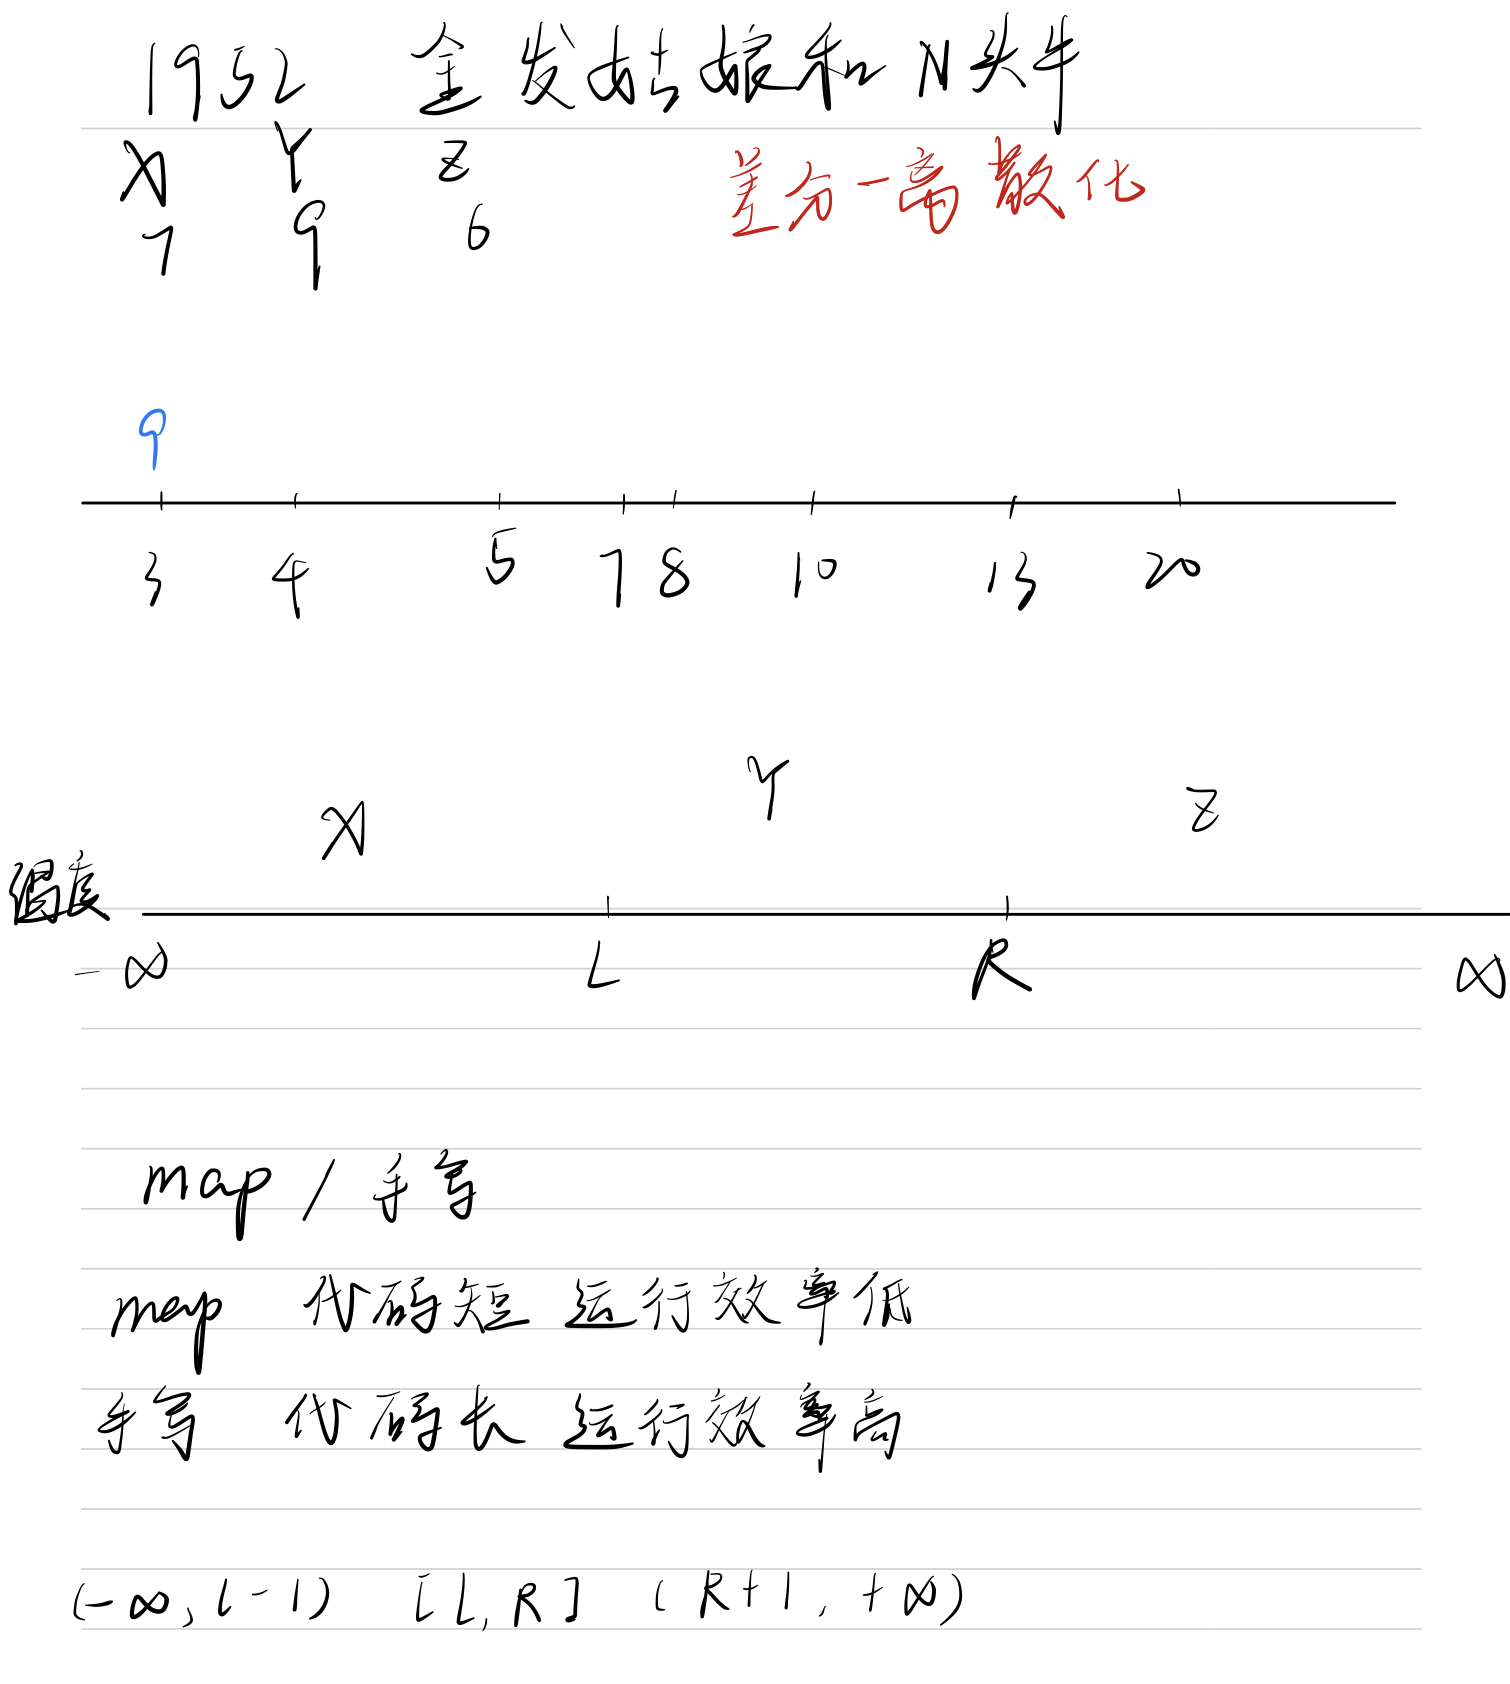 1952 金发姑娘和N头牛
X Y Z 差分-离散化
7 9 6
9
3 4 5 7 8 10 13 20
X Y Z
温度
-∞ L R ∞
map / 手写
map 代码短 运行效率低
手写 代码长 运行效率高
(-∞, l-1) [L, R] (R+1, +∞)